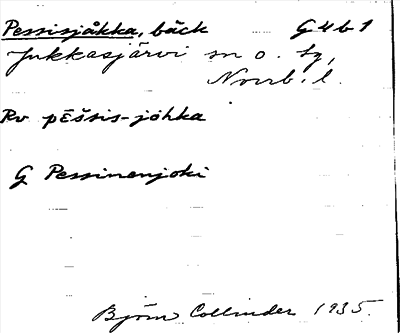 Pessisjåkka, bäck G4b1
Jukkasjärvi sn o. by,
Norrb. l.
Rv pēšsis-jóhka
G Pessinenjoki
Björn Collinder 1935.